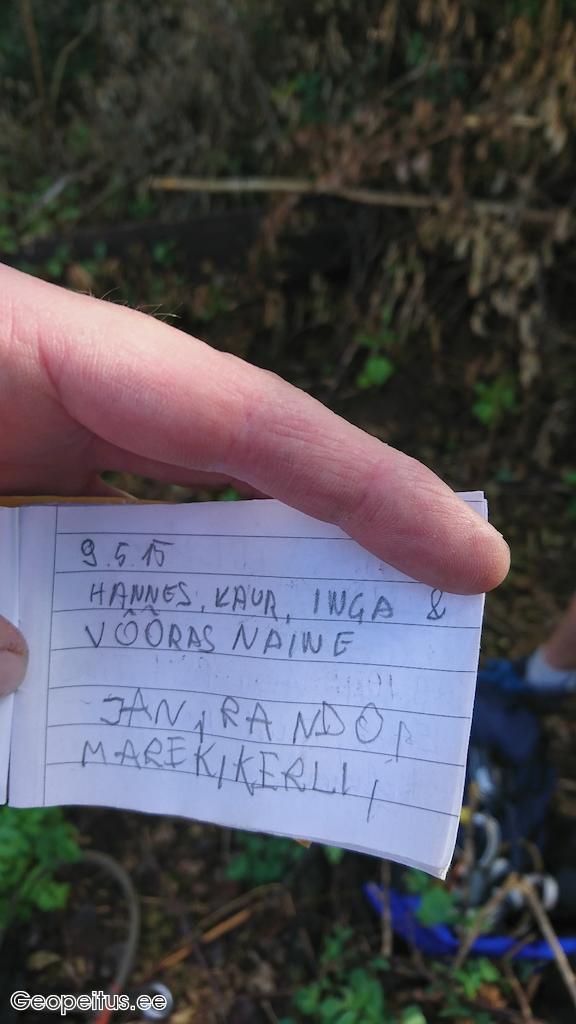 9.5.15
HANNES, KAUR, INGA &
VÕÕRAS NAINE
JAN, RANDO,
MAREK, KERLI,
Geopeitus.ee